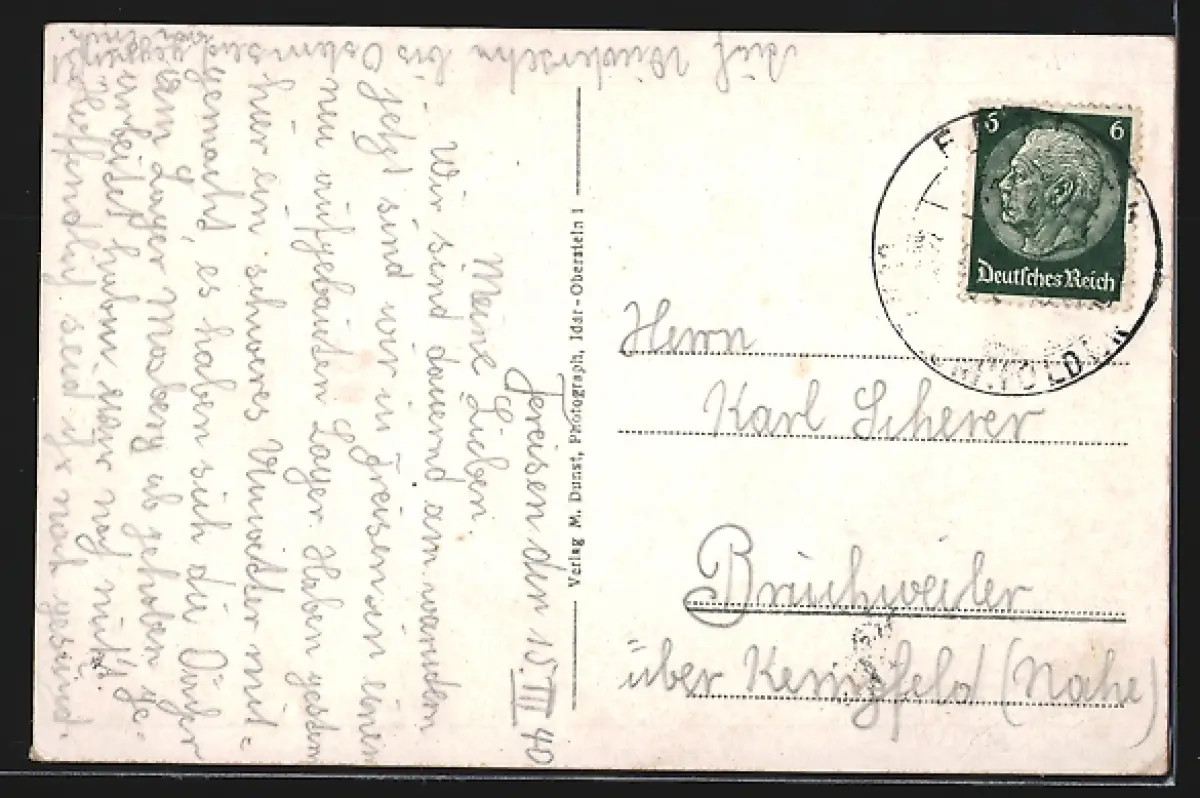 Freisen den 15. III 40
Meine Lieben.
Wir sind dauernd am wandern
jetzt sind wir in Freisen in einem
neu aufgebauten Lager. Haben gestern
hier ein schweres Unwetter mit=
gemacht, es haben sich die Dächer
am Lager abgehoben ge-
arbeitet haben wir noch nicht.
Hoffentlich seid ihr noch gesund.
Auf Wiedersehn bis Ostern
Verlag M. Dunst, Photograph, Idar-Oberstein 1
6
Deutsches Reich
Herrn
Karl Scherer
Bruchweiler
über Kempfeld (Nahe)